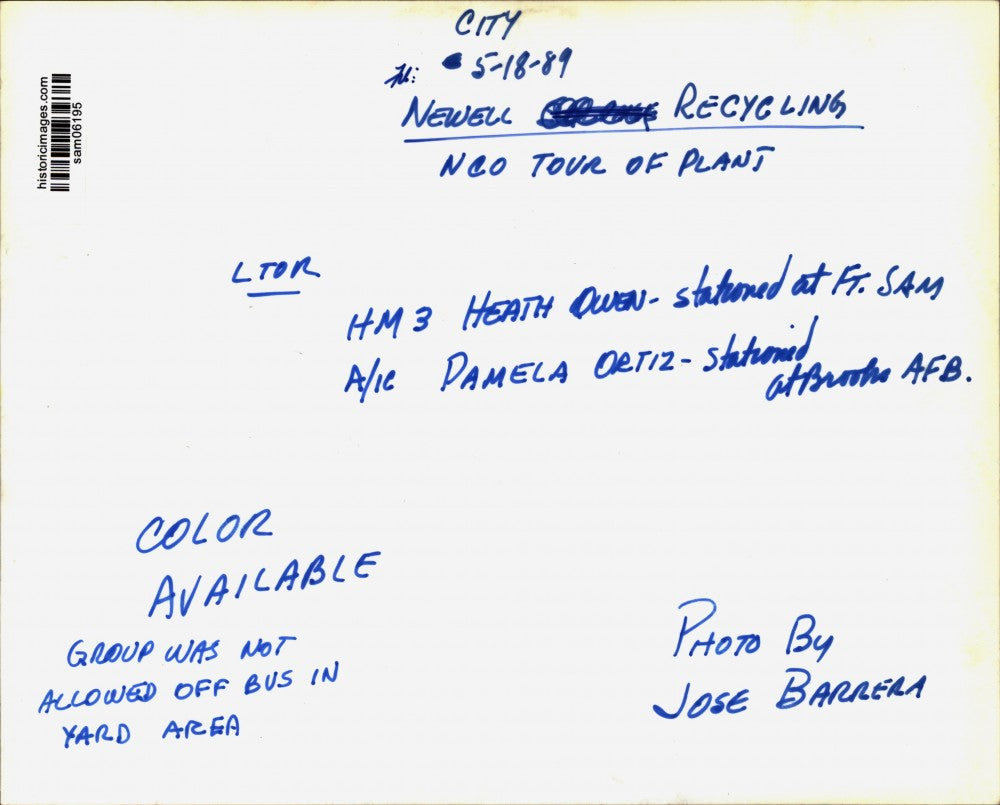 CITY
5-18-89
NEWELL RECYCLING
NCO TOUR OF PLANT
historicimages.com
sam06195
L TO R
HM3 HEATH OWEN - stationed at FT. SAM
A/1C PAMELA ORTIZ - stationed
at Brooks AFB.
COLOR
AVAILABLE
GROUP WAS NOT
ALLOWED OFF BUS IN
YARD AREA
PHOTO BY
JOSE BARRERA